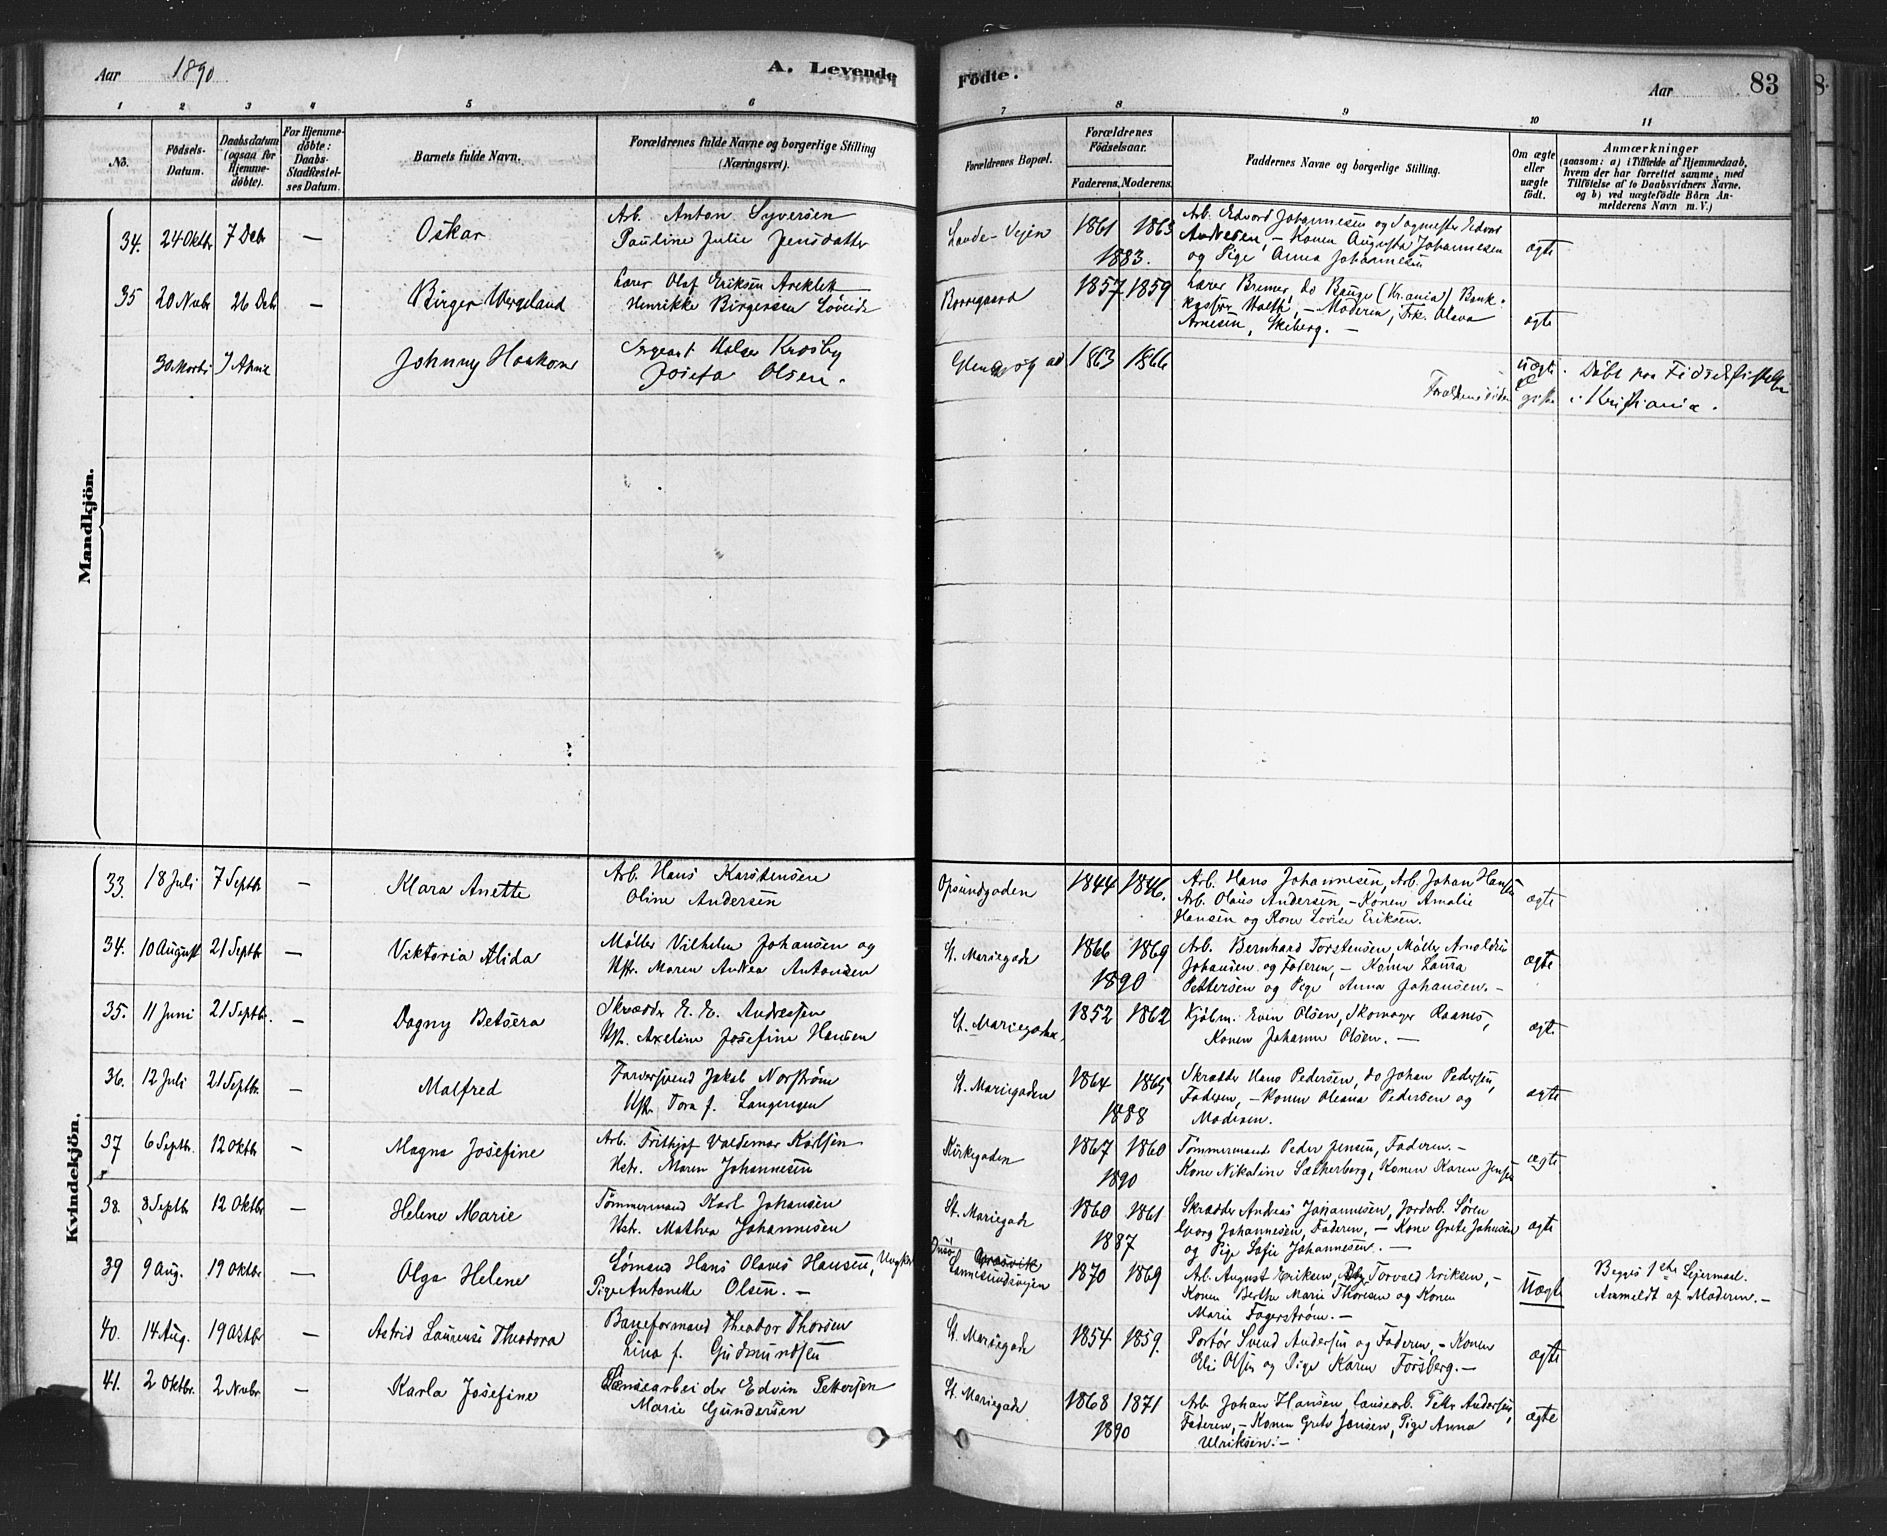 Aar 1890
A. Levende
Fødte.
Aar
83
1 2 3 4 5 6 7 8 9 10 11
No.
Fødsels-
Datum.
Daabsdatum
(ogsaa for
Hjemme-
døbte).
For Hjemme-
døbte:
Daabs-
Stadfæstel-
ses Datum.
Barnets fulde Navn.
Forældrenes fulde Navne og borgerlige Stilling
(Næringsvei).
Forældrenes Bopæl.
Forældrenes
Fødselsaar.
Faderens. Moderens.
Faddernes Navne og borgerlige Stilling.
Om ægte
eller
uægte
født.
Anmærkninger
(saasom: a) i Tilfælde af Hjemmedaab,
hvem der har forrettet samme, med
Tilføielse af to Daabsvidners Navne.
og b) ved uægtefødte Børn An-
melderens Navn m. V.)
Mandkjön.
34. 24 Oktbr 7 Debr — Oskar
Arb. Anton Syversen
Pauline Julie Jensdatter
Lande-Vejen 1861 1863
1883.
Arb. Edvard Johannesen og
Andresen, – Konen Augusta Johannesen
og Pige Anna Johannesen
ægte
35 20 Novbr 26 Debr — Birger Wergeland
Lærer Olaf Eriksen
Henrikke Birgersen
1857 1859
Lærer Bremer, do Bauge (Kr.ania) Bank-
– Moderen, Frk. Olava
Arnesen, Skiberg. –
ægte
30 Marts 7 April Johnny Haakon
Sergeant Krosby
Josefa Olsen.
1863 1866
uægte
Døbt paa Fødselsstiftelsen
i Kristiania.
Kvindekjön.
33. 18 Juli 7 Septbr — Klara Anette
Arb. Hans Karstensen
Oline Andersen
Opsundgaden 1844 1846.
Arb. Hans Johannesen, Arb. Johan Hansen
Arb. Olaus Andersen, – Konen Amalie
Hansen og Kone Lovise Eriksen.
ægte
34. 10 August 21 Septbr — Viktoria Alida
Møller Vilhelm Johansen og
Hstr. Maren Andrea Antonsen
St. Mariegade 1866 1869
1890
Arb. Bernhard Torstensen, Møller Arnoldus
Johansen og Faderen, – Konen Laura
Pettersen og Pige Anna Johansen. –
ægte
35. 11 Juni 21 Septbr. — Dagny Betsera
Skrædder E. E. Andreasen
Hstr. Axeline Josefine Hansen
St. Mariegaden 1852 1862
Kjøbm. Even Olsen, Skomager Raanes,
Konen Johanne Olsen. –
ægte
36. 12 Juli 21 Septbr. — Malfred
Farversvend Jakob Norstrøm
Hstr. Tora f. Langengen
St. Mariegaden 1864 1865
1888
Skrædder Hans Pedersen, do Johan Pedersen,
Faderen, – Konen Oleana Pedersen og
Moderen.
ægte
37 6 Septbr. 12 Oktbr — Magna Josefine
Arb. Frithjof Valdemar Karlsen
Hstr. Maren Johannesen
Kirkegaden 1867 1860
1890
Tømmermand Peder Jensen, Faderen. –
Kone Nikoline Sætherberg, Konen Karen Jensen
ægte
38. 8 Septbr 12 Oktbr — Helene Marie
Tømmermand Karl Johansen
Hstr. Mathea Johannesen
St. Mariegade 1860 1861
1887
Skrædder Andreas Johannesen, Jordarb. Søren
Georg Johannesen, Faderen, – Kone Grete Johnsen
og Pige Sofie Johannesen. –
ægte
39 9 Aug. 19 Oktbr — Olga Helene
Sømand Hans Olaves Hansen, Ungkarl
Pige Antonette Olsen. –
1870 1869
Arb. August Eriksen, Torvald Eriksen, –
Konen Berthe Marie Thoresen og Konen
Marie Fagerstrøm. –
Uægte
Begges 1ste Leiermaal.
Anmeldt af Moderen. –
40. 14 Aug. 19 Oktbr — Astrid Laurense Theodora
Baneformand Theodor Thorsen
Lina f. Gudmundsen
St. Mariegade 1854 1859.
Portør Svend Andersen og Faderen, – Konen
Eli Olsen og Pige Karen Forsberg. –
ægte
41. 2 Oktbr. 2 Novbr — Karla Josefine
Lænsearbeider Edvin Pettersen
Marie Gundersen
St. Mariegade 1868 1871
1890
Arb. Johan Hansen, Lænsearb. Petter Andersen,
Faderen, – Konen Grete Jansen, Pige Anna
Ulriksen. –
ægte